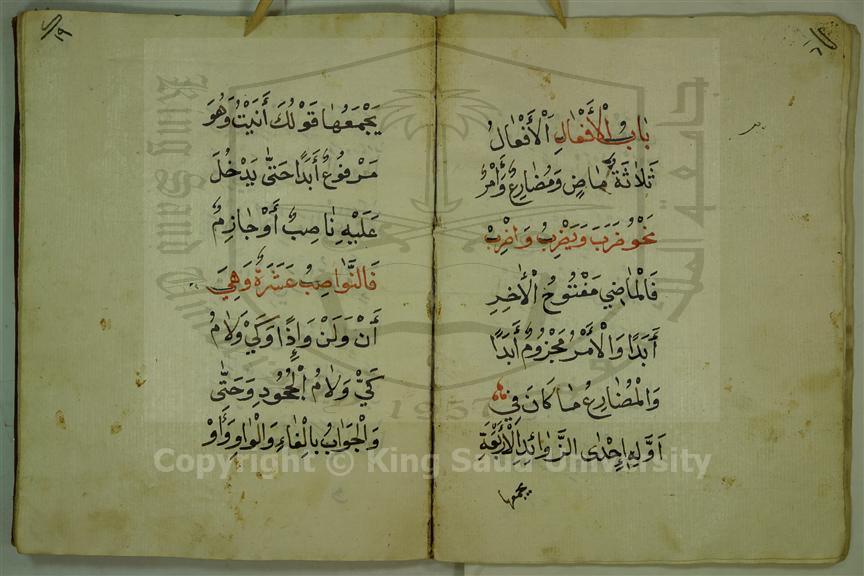 بَابُ الْأَفْعَالِ اَلْأَفْعَالُ
ثَلَاثَةٌ مَاضٍ وَمُضَارِعٌ وَأَمْرٌ
نَحْوُ ضَرَبَ وَيَضْرِبُ وَاضْرِبْ
فَالْمَاضِي مَفْتُوحُ الْأَخِرِ
أَبَدًا وَالْأَمْرُ مَجْزُومٌ أَبَدًا
وَالْمُضَارِعُ مَا كَانَ فِي
أَوَّلِهِ إِحْدَى الزَّوَائِدِ الْأَرْبَعَةِ
يجمعها
١٩
يَجْمَعُهَا قَوْلُكَ أَنَيْتُ وَهُوَ
مَرْفُوعٌ أَبَدًا حَتَّى يَدْخُلَ
عَلَيْهِ نَاصِبٌ أَوْ جَازِمٌ
فَالنَّوَاصِبُ عَشَرَةٌ وَهِيَ
أَنْ وَلَنْ وَإِذًا وَكَيْ وَلَامُ
كَيْ وَلَامُ الْجُحُودِ وَحَتَّى
وَالْجَوَابُ بِالْفَاءِ وَالْوَاوِ وَأَوْ
جامعة الملك
King Saud Univ
1957
Copyright © King Saud University